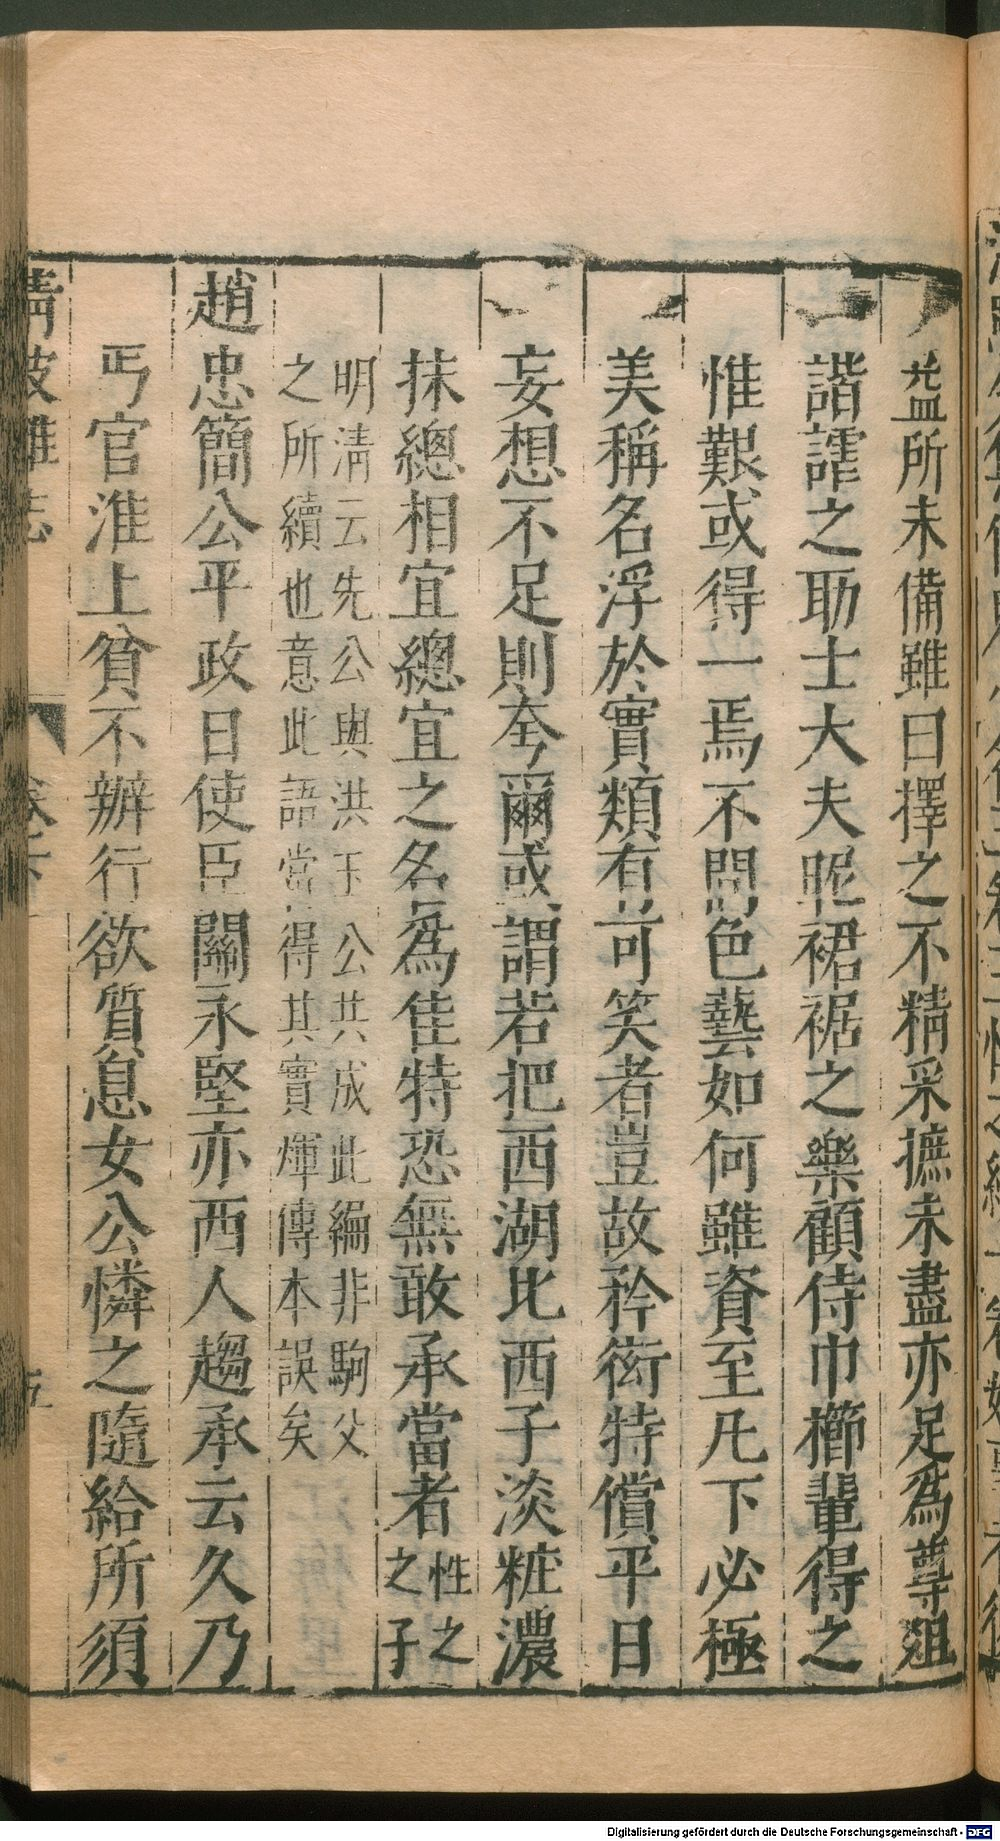 益所未備雖曰擇之不精采摭未盡亦足為尊俎
諧謔之助士大夫昵裙裾之樂顧侍巾櫛輩得之
惟艱或得一焉不問色藝如何雖資至凡下必極
美稱名浮於實類有可笑者豈故矜衒特償平日
妄想不足則夸爾或謂若把西湖比西子淡粧濃
抹總相宜總宜之名為佳特恐無敢承當者性之之子
明清云先公與洪玉公共成此編非駒父
之所續也意此語當得其實煇傳本誤矣
趙忠簡公平政日使臣關永堅亦西人趨承云久乃
丐官淮上貧不辦行欲質息女公憐之隨給所須
清波雜志
五
Digitalisierung gefördert durch die Deutsche Forschungsgemeinschaft - DFG